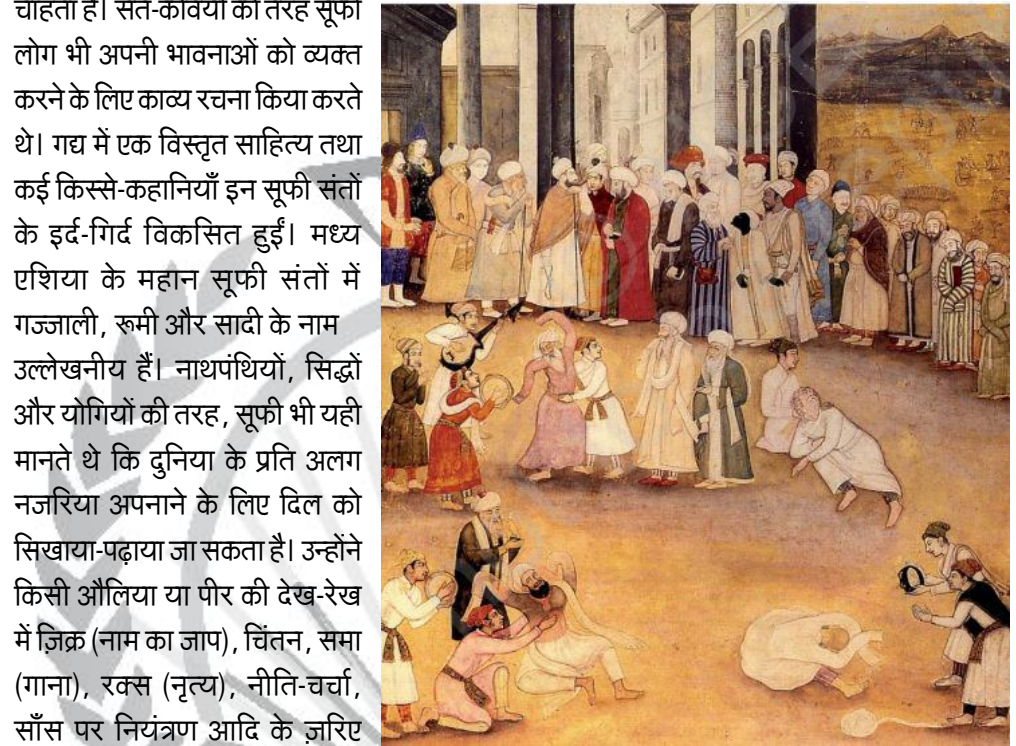 चाहता है। संत-कवियों की तरह सूफी
लोग भी अपनी भावनाओं को व्यक्त
करने के लिए काव्य रचना किया करते
थे। गद्य में एक विस्तृत साहित्य तथा
कई किस्से-कहानियाँ इन सूफी संतों
के इर्द-गिर्द विकसित हुईं। मध्य
एशिया के महान सूफी संतों में
गज्जाली, रूमी और सादी के नाम
उल्लेखनीय हैं। नाथपंथियों, सिद्धों
और योगियों की तरह, सूफी भी यही
मानते थे कि दुनिया के प्रति अलग
नजरिया अपनाने के लिए दिल को
सिखाया-पढ़ाया जा सकता है। उन्होंने
किसी औलिया या पीर की देख-रेख
में ज़िक्र (नाम का जाप), चिंतन, समा
(गाना), रक्स (नृत्य), नीति-चर्चा,
साँस पर नियंत्रण आदि के ज़रिए